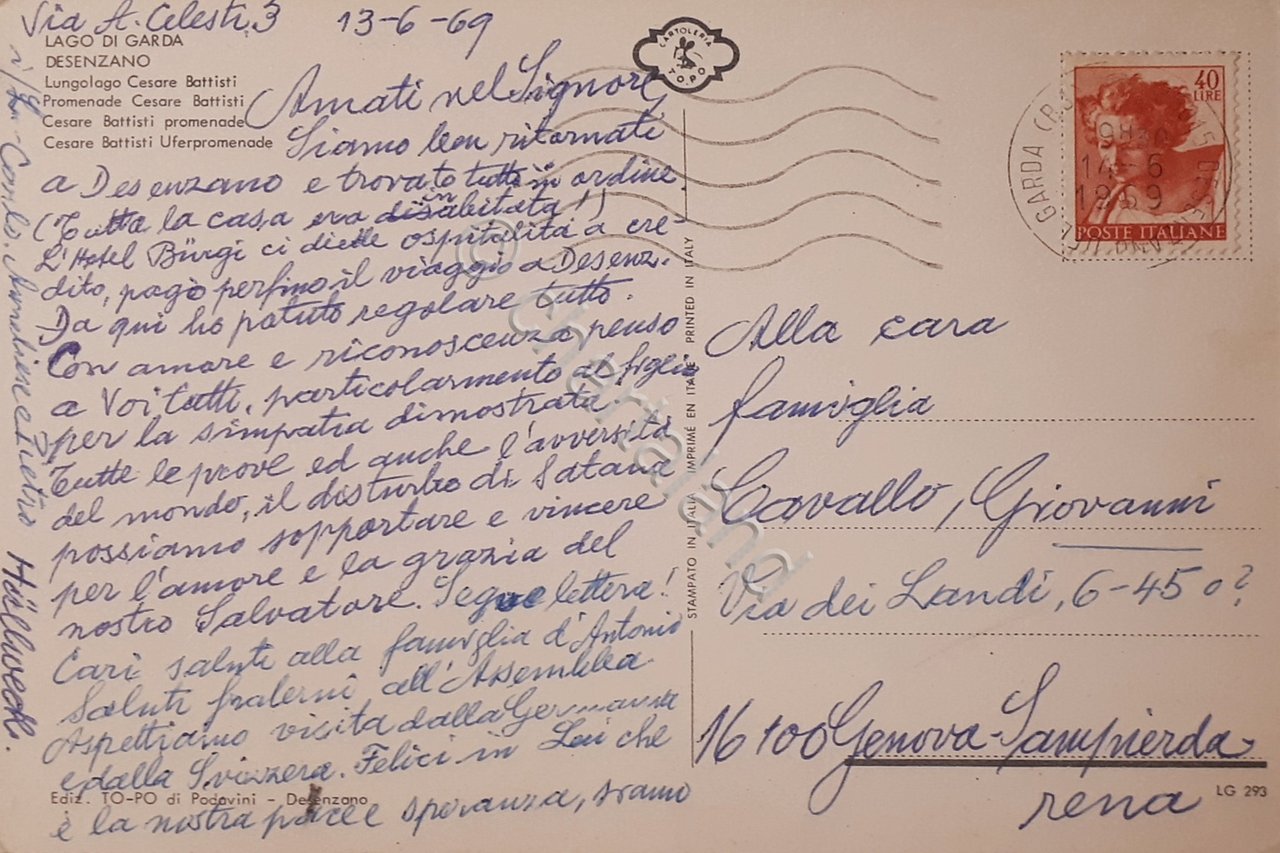 Via A. Celesti, 3 13-6-69
LAGO DI GARDA
DESENZANO
Lungolago Cesare Battisti
Promenade Cesare Battisti
Cesare Battisti promenade
Cesare Battisti Uferpromenade
Amati nel Signore
Siamo ben ritornati
a Desenzano e trovato tutto in ordine
(Tutta la casa era disabitata!)
in
L'Hotel Bürgi ci diede ospitalità a cre-
dito, pagò perfino il viaggio a Desenz.
Da qui ho potuto regolare tutto.
Con amore e riconoscenza penso
a Voi tutti, particolarmente ai figli
per la simpatia dimostrata.
Tutte le prove ed anche l'avversità
del mondo, il disturbo di Satana
possiamo sopportare e vincere
per l'amore e la grazia del
nostro Salvatore. Segue lettera!
Cari saluti alla famiglia d'Antonio
Saluti fraterni all'Assemblea
Aspettiamo visita dalla Germania
e dalla Svizzera. Felici in Lui che
è la nostra pace e speranza, siamo
Ediz. TO-PO di Podavini - Desenzano
Pietro Hällhoeck.
CARTOLERIA
TOPO
STAMPATO IN ITALIA IMPRIMÉ EN ITALIE PRINTED IN ITALY
40
LIRE
POSTE ITALIANE
GARDA
9H30
14-6
1969
Alla cara
famiglia
Cavallo, Giovanni
Via dei Landi, 6-45 o?
16100 Genova-Sampierda-
rena
LG 293
© Cherialand